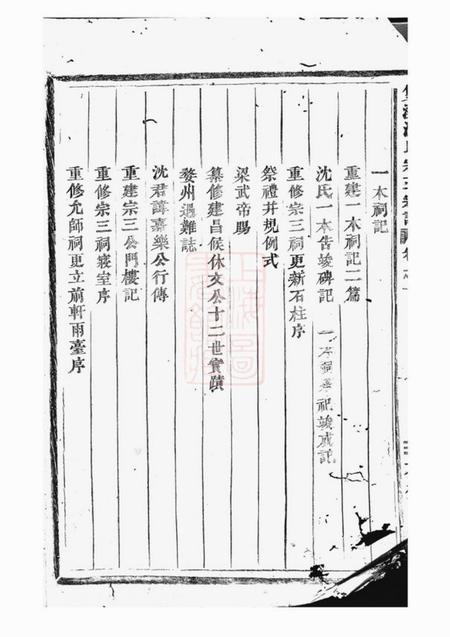 一本祠記
重建一本祠記二篇
沈氏一本告竣碑記 一本祠 祀竣成記
重修宗三祠更新石柱序
祭禮并規例式
梁武帝賜
纂修建昌候休文公十二世實蹟
婺州遇難誌
沈君諱嘉樂公行傳
重建宗三公門樓記
重修宗三祠寢室序
重修允師祠更立前軒雨臺序